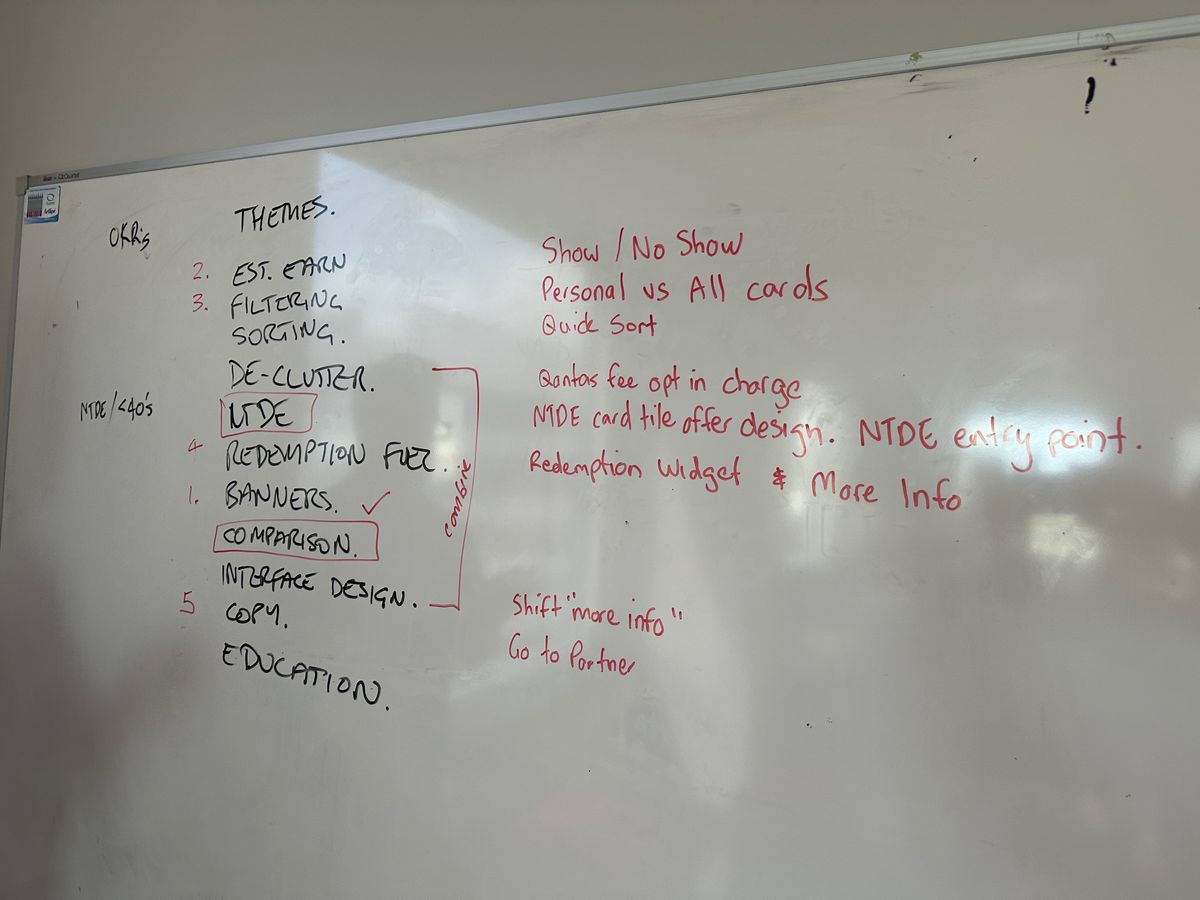 OKR's
THEMES.
2. EST. EARN
Show / No Show
3. FILTERING
Personal vs All cards
SORTING.
Quick Sort
DE-CLUTTER.
Qantas fee opt in charge
NTDE/<40's
NTDE
NTDE card tile offer design. NTDE entry point.
4 REDEMPTION FUEL.
Redemption Widget & More Info
1. BANNERS. ✓
combine
COMPARISON.
INTERFACE DESIGN.
5 COPY.
Shift "more info"
Go to Partner
EDUCATION.